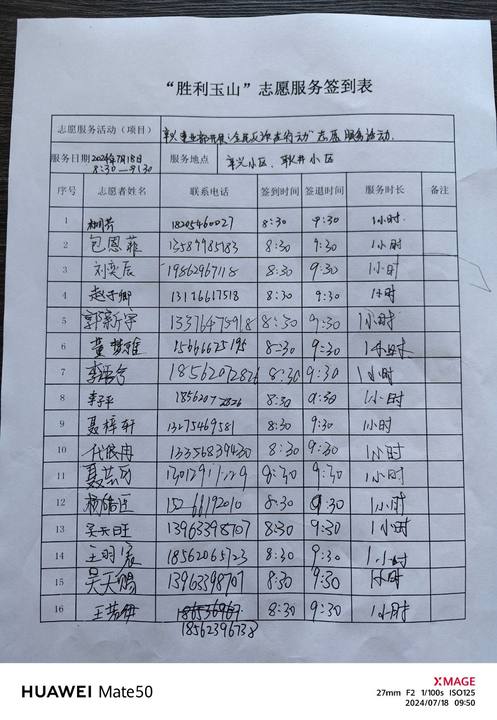 “胜利玉山”志愿服务签到表
志愿服务活动（项目） 志愿服务活动.
服务日期 2024年7月18日 8:30—9:30 服务地点 小区、 小区
序号 志愿者姓名 联系电话 签到时间 签退时间 服务时长 备注
1 18205460027 8:30 9:30 1小时.
2 包恩菲 13589985183 8:30 9:30 1小时
3 刘奕辰 19862967118 8:30 9:30 1小时
4 13126617518 8:30 9:30 1小时
5 郭新宇 8:30 9:30 1小时
6 董梦雅 8:30 9:30 1小时
7 18562072826 8:30 9:30 1小时
8 李平 18562072826 8:30 9:30 1小时
9 聂梓轩 13275469581 8:30 9:30 1小时
10 13356839430 8:30 9:30 1小时
11 8:30 9:30 1小时
12 15266192010 8:30 9:30 1小时
13 吴天旺 13963398707 8:30 9:30 1小时
14 18562065723 8:30 9:30 1小时
15 吴天赐 13963398707 8:30 9:30 1小时
16 8:30 9:30 1小时
18562396738
XMAGE
HUAWEI Mate50
27mm F2 1/100s ISO125
2024/07/18 09:50